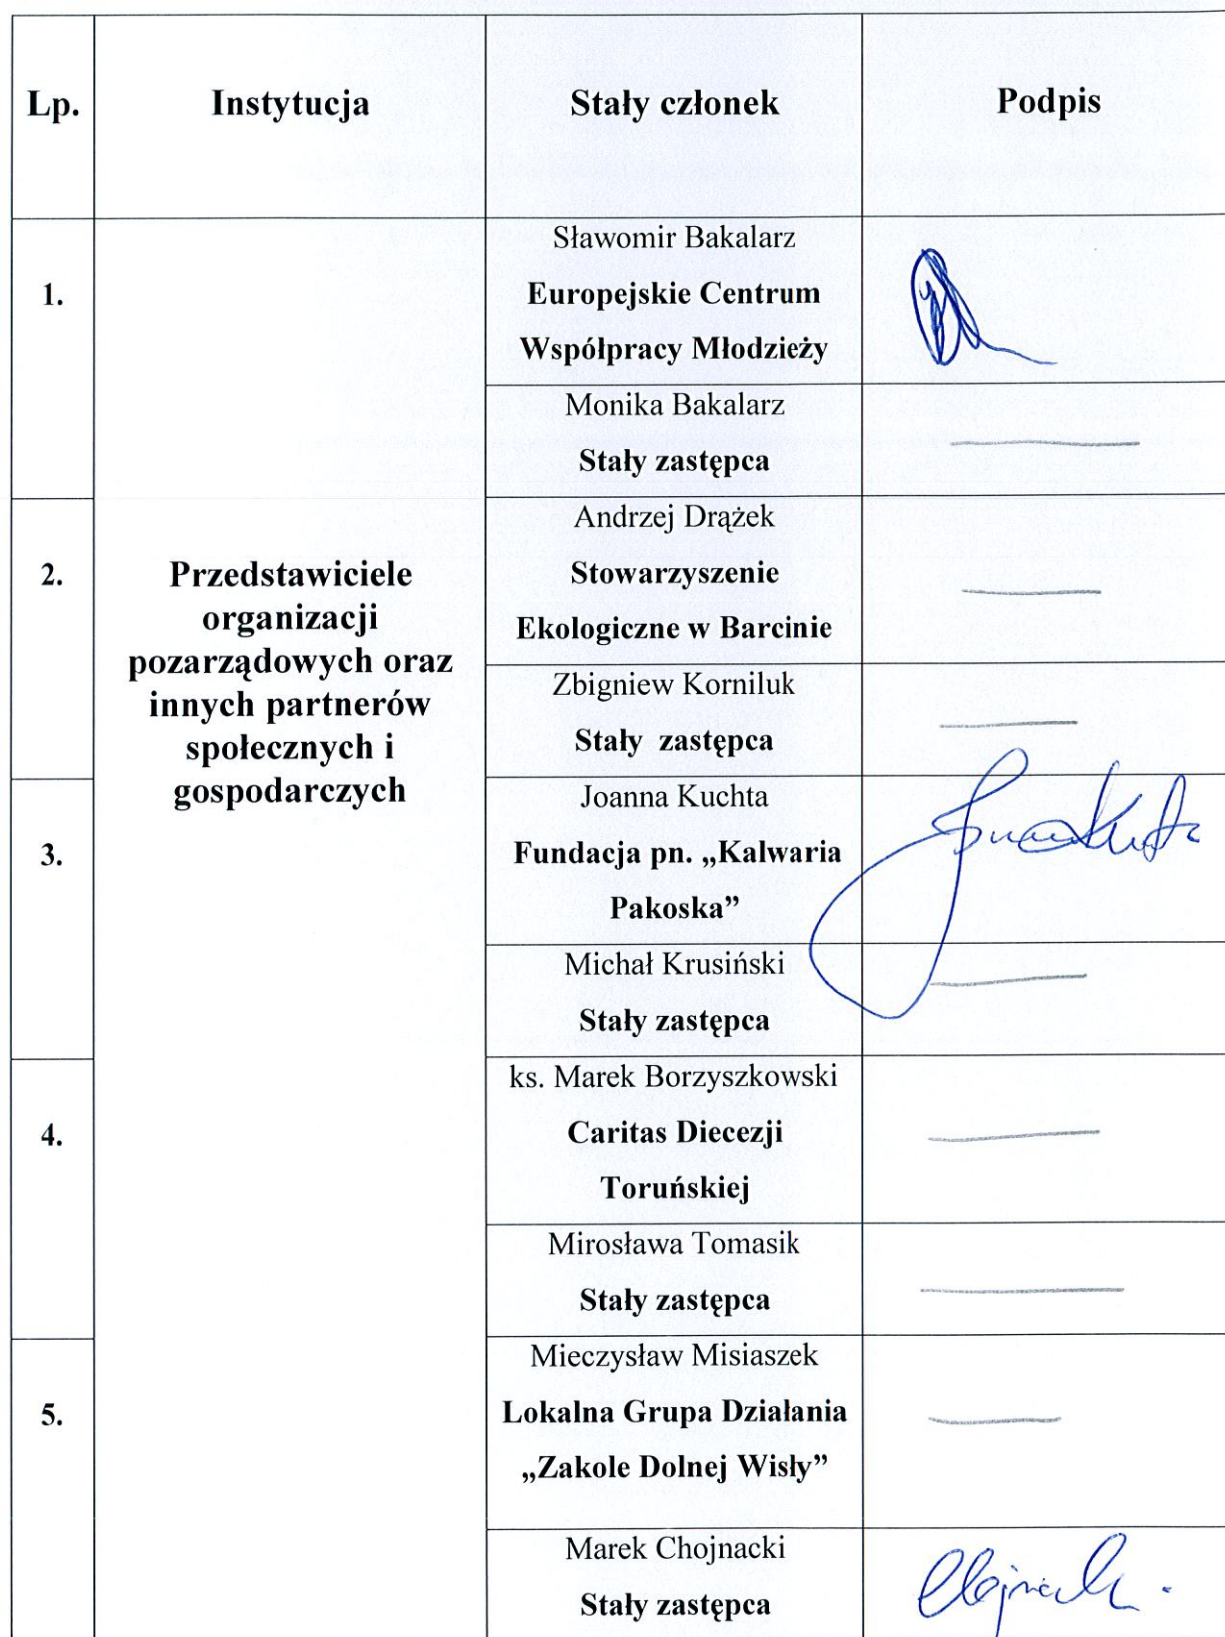 Lp.
Instytucja
Stały członek
Podpis
1.
Sławomir Bakalarz
Europejskie Centrum
Współpracy Młodzieży
Monika Bakalarz
Stały zastępca
2.
Przedstawiciele
organizacji
pozarządowych oraz
innych partnerów
społecznych i
gospodarczych
Andrzej Drążek
Stowarzyszenie
Ekologiczne w Barcinie
Zbigniew Korniluk
Stały zastępca
3.
Joanna Kuchta
Fundacja pn. „Kalwaria
Pakoska”
Michał Krusiński
Stały zastępca
4.
ks. Marek Borzyszkowski
Caritas Diecezji
Toruńskiej
Mirosława Tomasik
Stały zastępca
5.
Mieczysław Misiaszek
Lokalna Grupa Działania
„Zakole Dolnej Wisły”
Marek Chojnacki
Stały zastępca